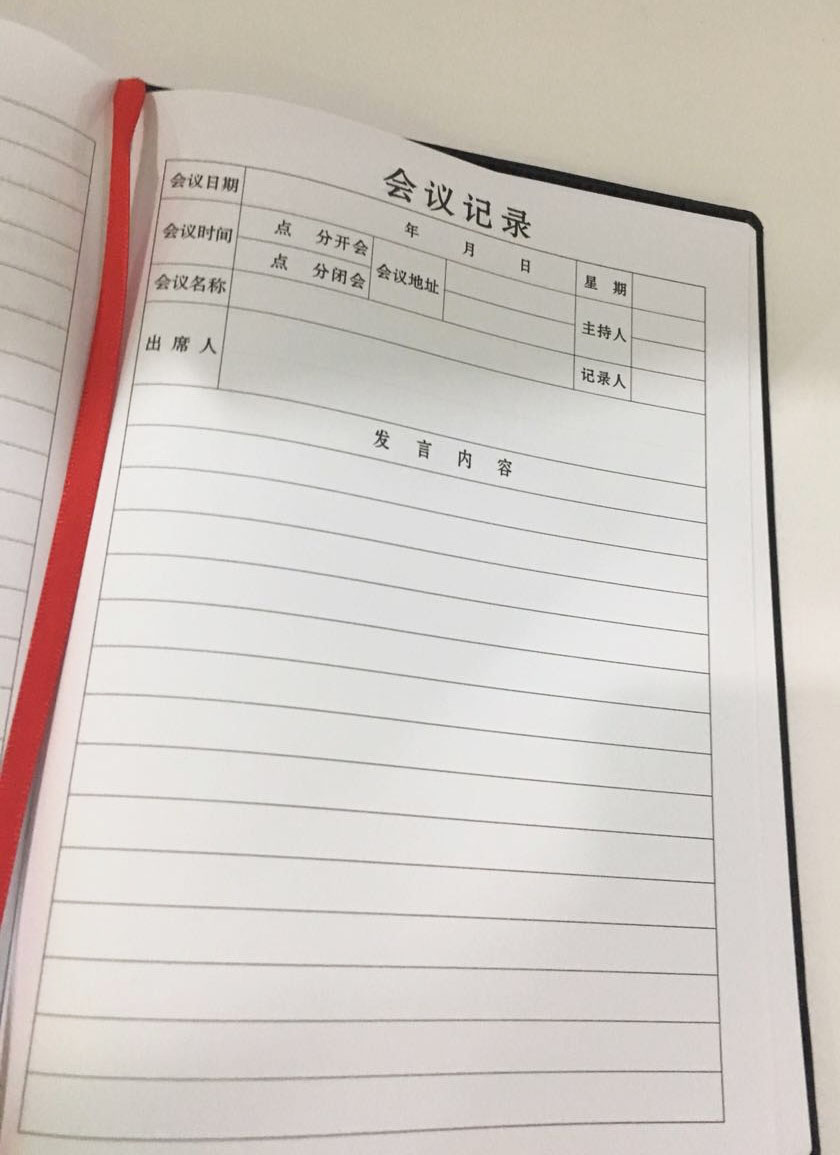 会议记录
会议日期 年 月 日 星 期
会议时间 点 分开会 会议地址 主持人
点 分闭会
会议名称 记录人
出 席 人
发 言 内 容